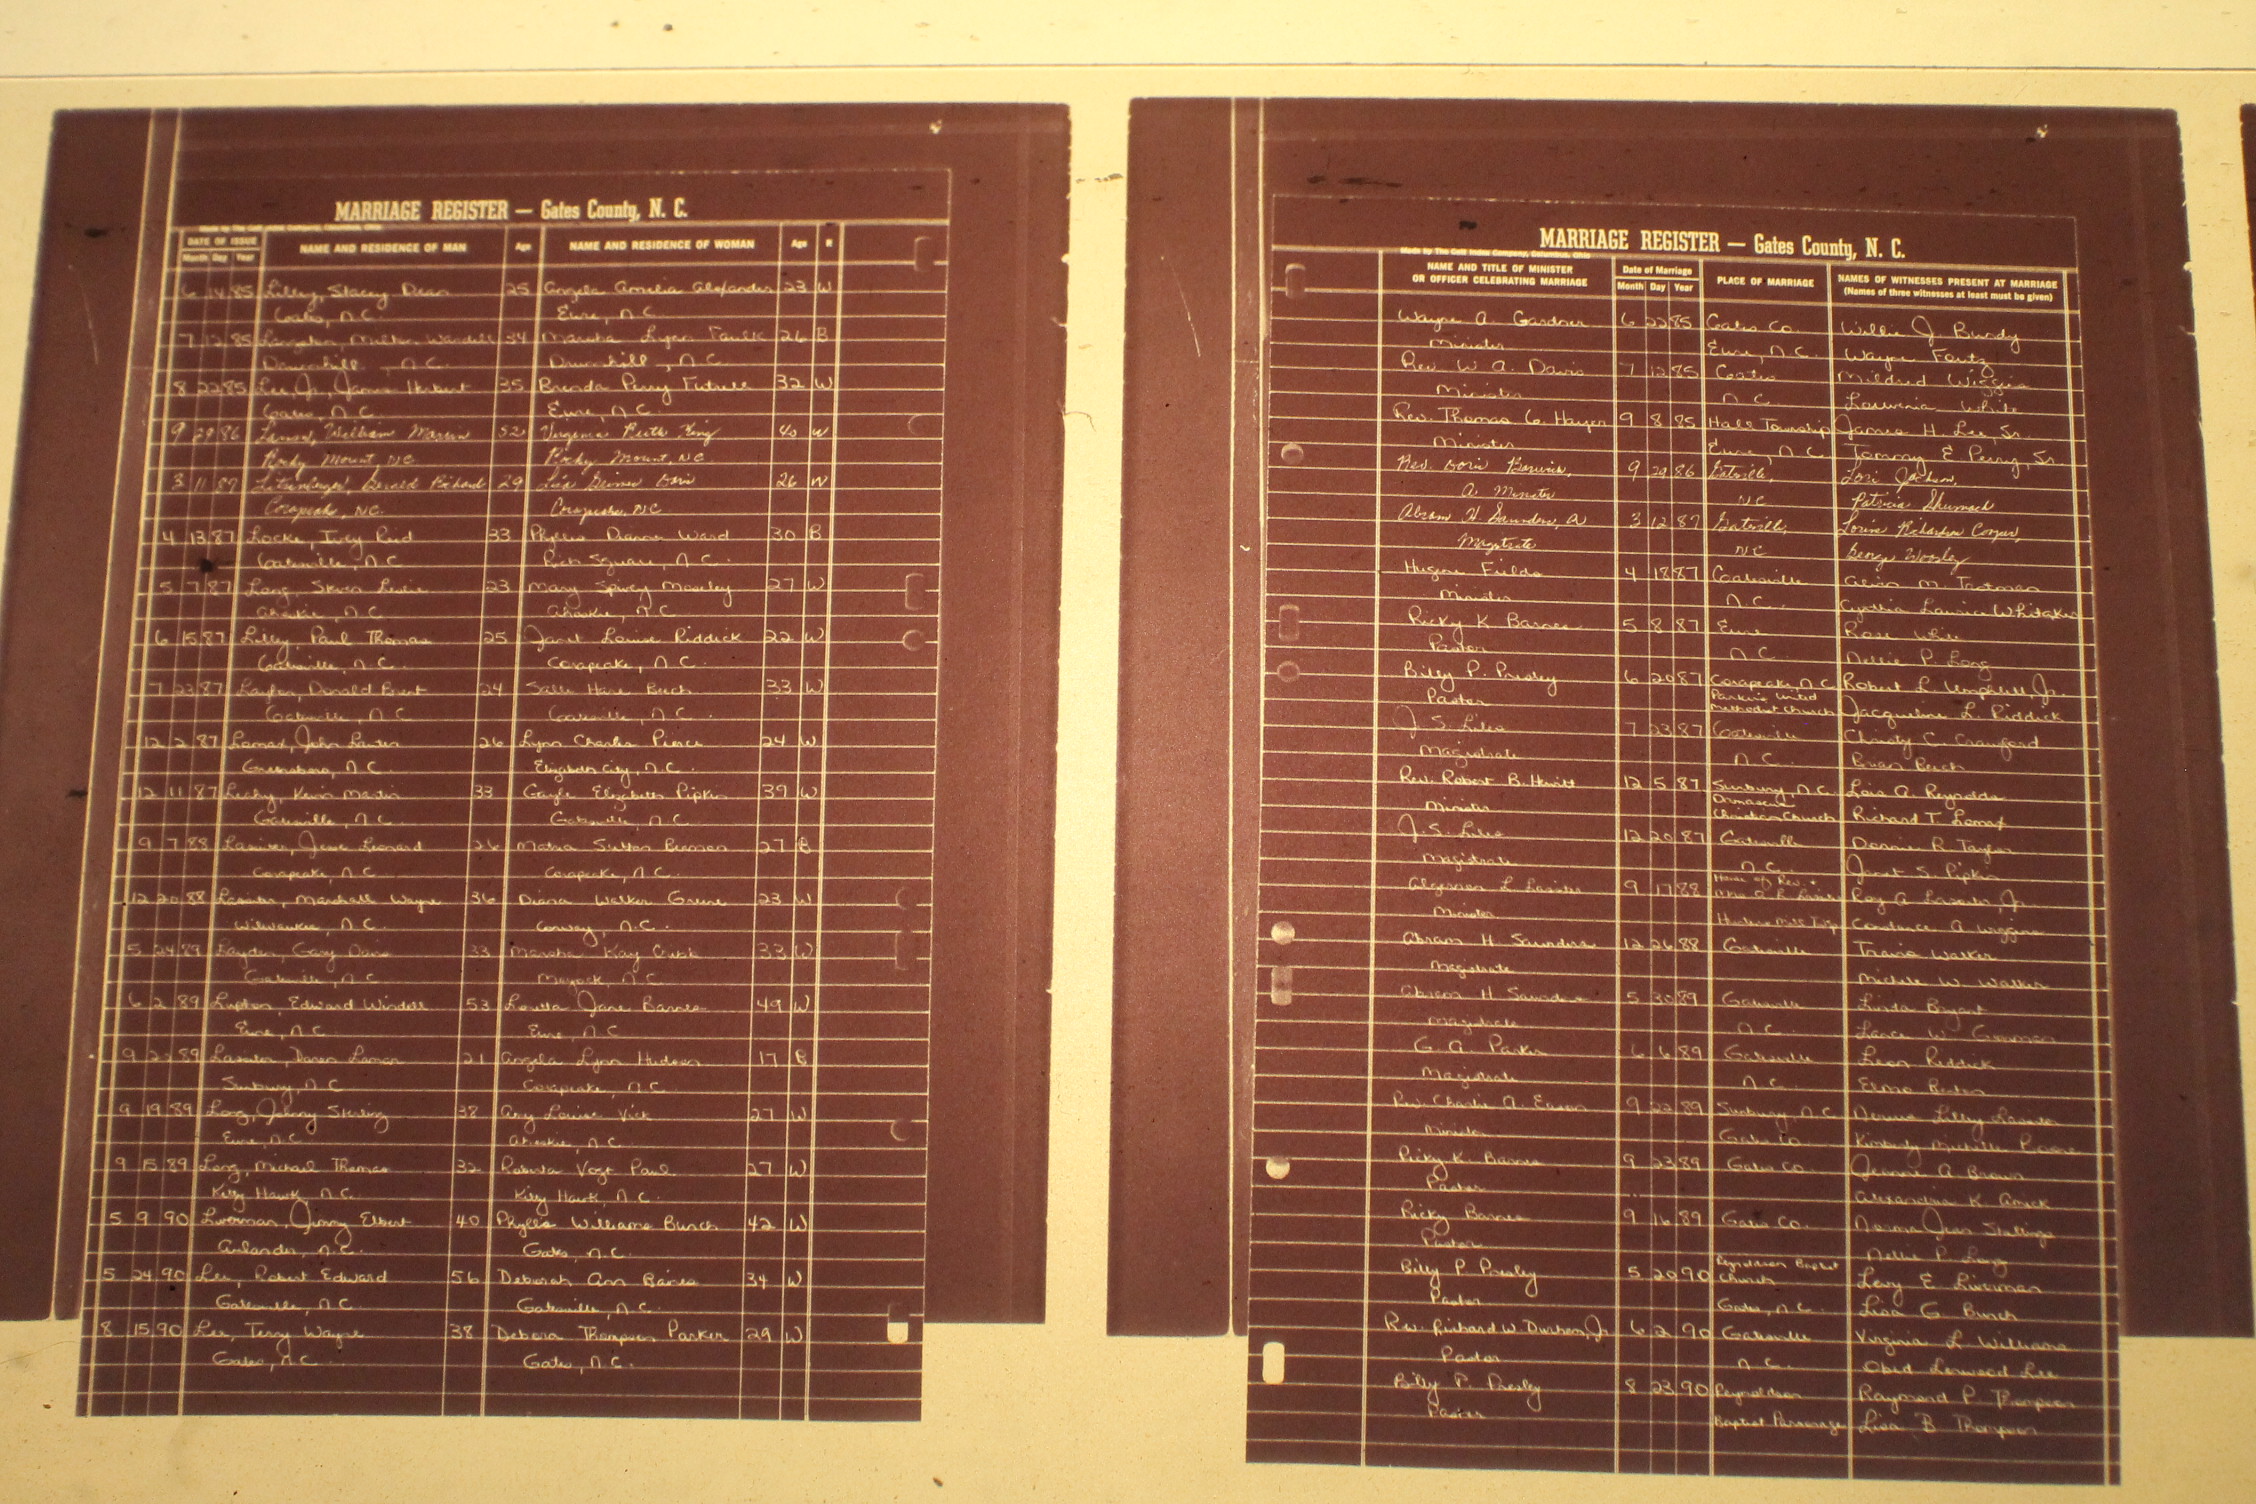 MARRIAGE REGISTER — Gates County, N. C.
DATE OF ISSUE NAME AND RESIDENCE OF MAN Age NAME AND RESIDENCE OF WOMAN Age R
Month Day Year
6 14 85 Lilley, Stacey Dean 25 Angela Amelia Alexander 23 W
Gates, N.C. Eure, N.C.
7 12 85 Langston, Milton Wardell 34 Marsha Lynn Faulk 26 B
N.C. N.C.
8 22 85 Lee Jr., James Herbert 35 Brenda Perry Futrell 32 W
Gates, N.C. Eure, N.C.
9 29 86 William Marvin 52 Virginia Ruth King 40 W
Rocky Mount, NC Rocky Mount, NC.
3 11 87 Gerald Richard 29 Lisa 26 W
Corapeake, NC. Corapeake, NC
4 13 87 Locke, Ivey Reid 33 Phyllis Dianne Ward 30 B
Gatesville, N.C. Rich Square, N.C.
5 7 87 Long, Steven Leslie 23 Mary Spivey Moseley 27 W
Ahoskie, N.C. Ahoskie, N.C.
6 15 87 Lilley, Paul Thomas 25 Janet Louise Riddick 22 W
Gatesville, N.C. Corapeake, N.C.
7 23 87 Layton, Donald Brent 24 Sallie Hare Beech 33 W
Gatesville, N.C. Gatesville, N.C.
12 2 87 Lomax, John 26 Lynn Charles Pierce 24 W
Greensboro, N.C. Elizabeth City, N.C.
12 11 87 Kevin Martin 33 Gayle Elizabeth Pipkin 39 W
Gatesville, N.C. Gatesville, N.C.
9 7 88 Lassiter, Jesse Leonard 26 Sutton 27 B
Corapeake, N.C. Corapeake, N.C.
12 20 88 Lassiter, Marshall Wayne 36 Diana Walker Greene 23 W
Milwaukee, N.C. Conway, N.C.
5 24 89 Layden, Gary Davis 33 Marsha Kay 33 W
Gatesville, N.C. Moyock, N.C.
6 2 89 Lupton, Edward Windell 53 Loretta Jane Barnes 49 W
Eure, N.C. Eure, N.C.
9 89 Lassiter, Daren Lamar 21 Angela Lynn Hudson 17 B
Sunbury, N.C. Corapeake, N.C.
9 19 89 Long, Johnny Sterling 38 Amy Louise Vick 27 W
Eure, N.C. Ahoskie, N.C.
9 15 89 Long, Michael Thomas 32 Roberta Vogt Paul 27 W
Kitty Hawk, N.C. Kitty Hawk, N.C.
5 9 90 Liverman, Jimmy Elbert 40 Phyllis Williams Bunch 42 W
Aulander, N.C. Gates, N.C.
5 24 90 Lee, Robert Edward 56 Deborah Ann Baines 34 W
Gatesville, N.C. Gatesville, N.C.
8 15 90 Lee, Terry Wayne 38 Debora Thompson Parker 29 W
Gates, N.C. Gates, N.C.
MARRIAGE REGISTER — Gates County, N. C.
Made by The Cott Index Company, Columbus, Ohio
NAME AND TITLE OF MINISTER Date of Marriage PLACE OF MARRIAGE NAMES OF WITNESSES PRESENT AT MARRIAGE
OR OFFICER CELEBRATING MARRIAGE Month Day Year (Names of three witnesses at least must be given)
Wayne A. Gardner 6 22 85 Gates Co. Willie J. Bundy
Minister Eure, N.C. Wayne Foutz
Rev. W. A. Davis 7 12 85 Gates Mildred Wiggins
Minister N.C. White
Rev. Thomas G. 9 8 85 Hall Township James H. Lee, Sr.
Minister Eure, N.C. Tommy E. Perry, Sr.
Rev. 9 29 86 Gatesville, Lori Jackson,
A Minister NC Patricia Shumach
Abram H. Saunders, A 3 12 87 Gatesville, Richardson Cooper,
Magistrate NC George
Fields 4 18 87 Gatesville M. Trotman
Minister N.C. Cynthia Whitaker
Ricky K. Barnes 5 8 87 Eure Rose White
Pastor N.C. Nellie P. Long
Billy P. Presley 6 20 87 Corapeake, N.C. Robert L. Jr.
Pastor Parker's United Methodist Church Jacqueline L. Riddick
J. S. Liles 7 23 87 Gatesville Christy C. Crawford
Magistrate N.C. Brian Beech
Rev. Robert B. Hewitt 12 5 87 Sunbury, N.C. Lois A. Reynolds
Minister Damascus Christian Church Richard T. Lomax
J. S. Liles 12 20 87 Gatesville R. Taylor
Magistrate N.C. Janet S. Pipkin
Algernon L. Lassiter 9 17 88 Home of Rev. + Mrs. A. L. Lassiter Roy A. Lassiter, Jr.
Minister Hunters Mill Twp. Constance A. Wiggins
Abram H. Saunders 12 26 88 Gatesville Walker
Magistrate Michele W. Walker
Abram H. Saunders 5 30 89 Gatesville Linda Bryant
Magistrate N.C. Lance W.
G. A. Parker 6 6 89 Gatesville Leon Riddick
Magistrate N.C. Elmo
Rev. Charlie A. Eason 9 22 89 Sunbury, N.C. Lilley Lassiter
Minister Gates Co. Kimberly Michelle
Ricky K. Barnes 9 23 89 Gates Co. A. Brown
Pastor Alexandria K. Amick
Ricky Barnes 9 16 89 Gates Co. Norma Jean Stallings
Pastor Nellie P. Long
Billy P. Presley 5 20 90 Reynoldson Baptist Church Levy E. Liverman
Pastor Gates, N.C. Lisa G. Bunch
Rev. Richard W. Durham, Jr. 6 2 90 Gatesville Virginia L. Williams
Pastor N.C. Obed Lee
Billy P. Presley 8 23 90 Reynoldson Raymond P. Thompson
Pastor Baptist Parsonage Lisa B. Thompson